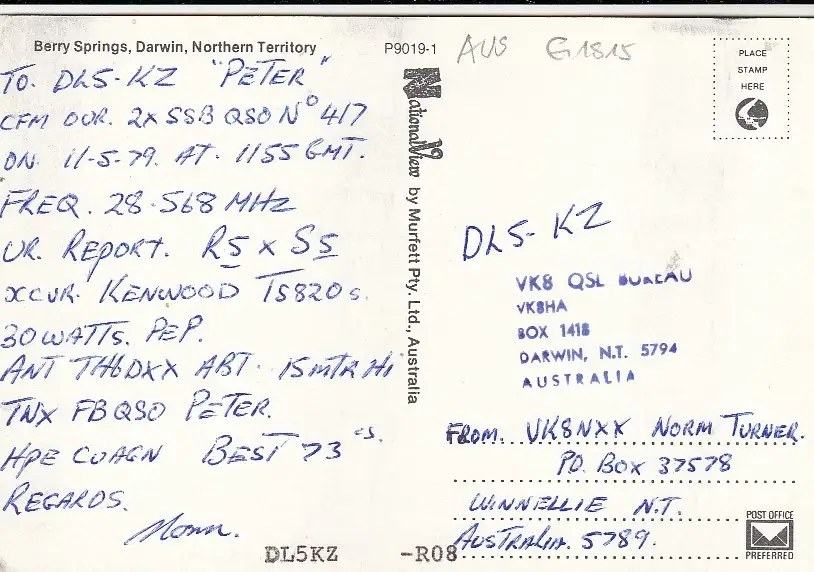 Berry Springs, Darwin, Northern Territory
P9019-1
AUS G1815
PLACE
STAMP
HERE
TO. DL5-KZ "PETER"
CFM OUR. 2X SSB QSO No 417
ON. 11-5-79. AT. 1155 GMT.
FREQ. 28.568 MHz
UR. REPORT. R5 x S5
XCUR. KENWOOD TS820s.
30 WATTS. PEP.
ANT TH6DXX ABT. 15 MTR Hi
TNX FB QSO PETER.
HPE CUAGN BEST 73 's.
REGARDS.
Norm.
NationalView by Murfett Pty. Ltd., Australia
DL5-KZ
VK8 QSL BUREAU
VK8HA
BOX 1418
DARWIN, N.T. 5794
AUSTRALIA
FROM. VK8NXX NORM TURNER.
P.O. BOX 37578
WINNELLIE N.T.
AUSTRALIA. 5789.
POST OFFICE
PREFERRED
DL5KZ -R08